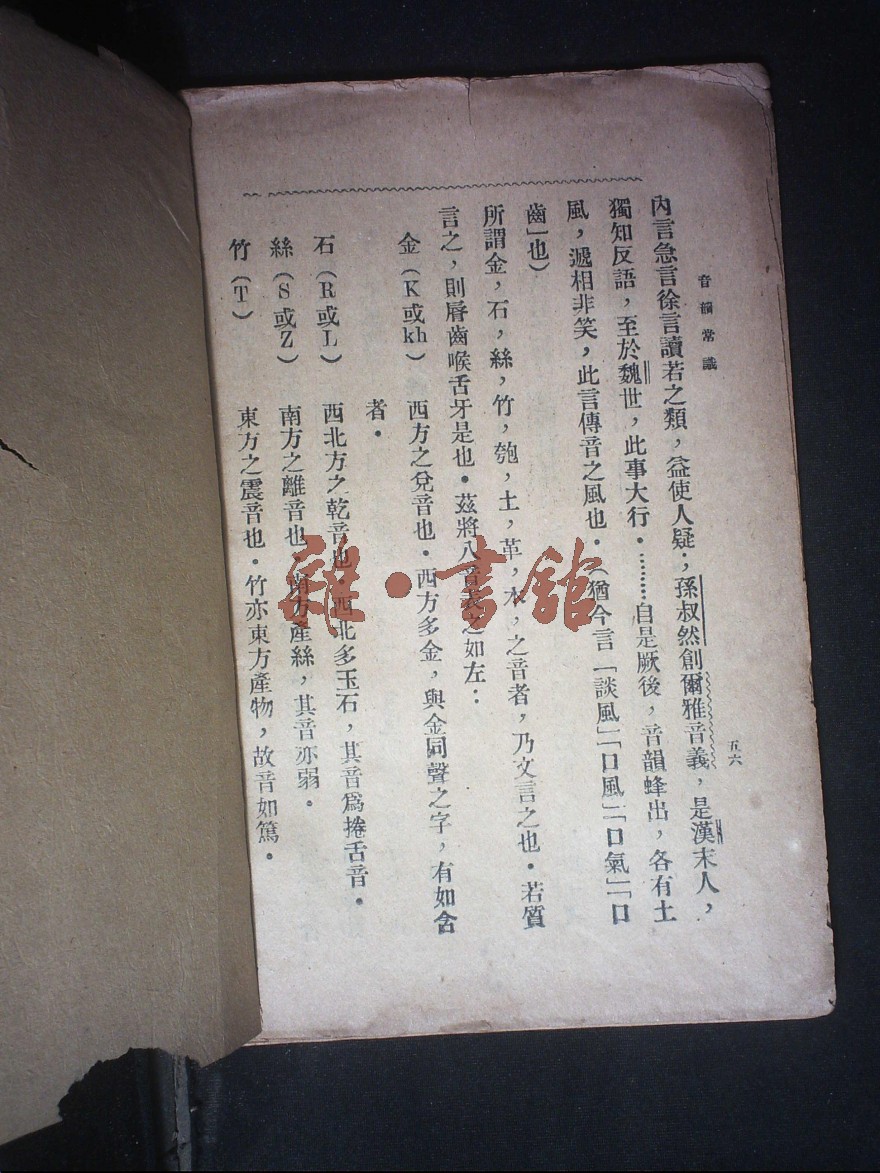 音韻常識
五六
內言急言徐言讀若之類，益使人疑；孫叔然創爾雅音義，是漢末人，
獨知反語，至於魏世，此事大行。………自是厥後，音韻蜂出，各有土
風，遞相非笑，此言傳音之風也。（猶今言「談風」「口風」「口氣」「口
齒」也）
所謂金，石，絲，竹，匏，土，革，木，之音者，乃文言之也。若質
言之，則脣齒喉舌牙是也。茲將八音表之如左：
金（K或kh） 西方之兌音也。西方多金，與金同聲之字，有如含
者。
石（R或L） 西北方之乾音也。西北多玉石，其音爲捲舌音。
絲（S或Z） 南方之離音也。南方產絲，其音亦弱。
竹（T） 東方之震音也。竹亦東方產物，故音如篤。
雜·書館